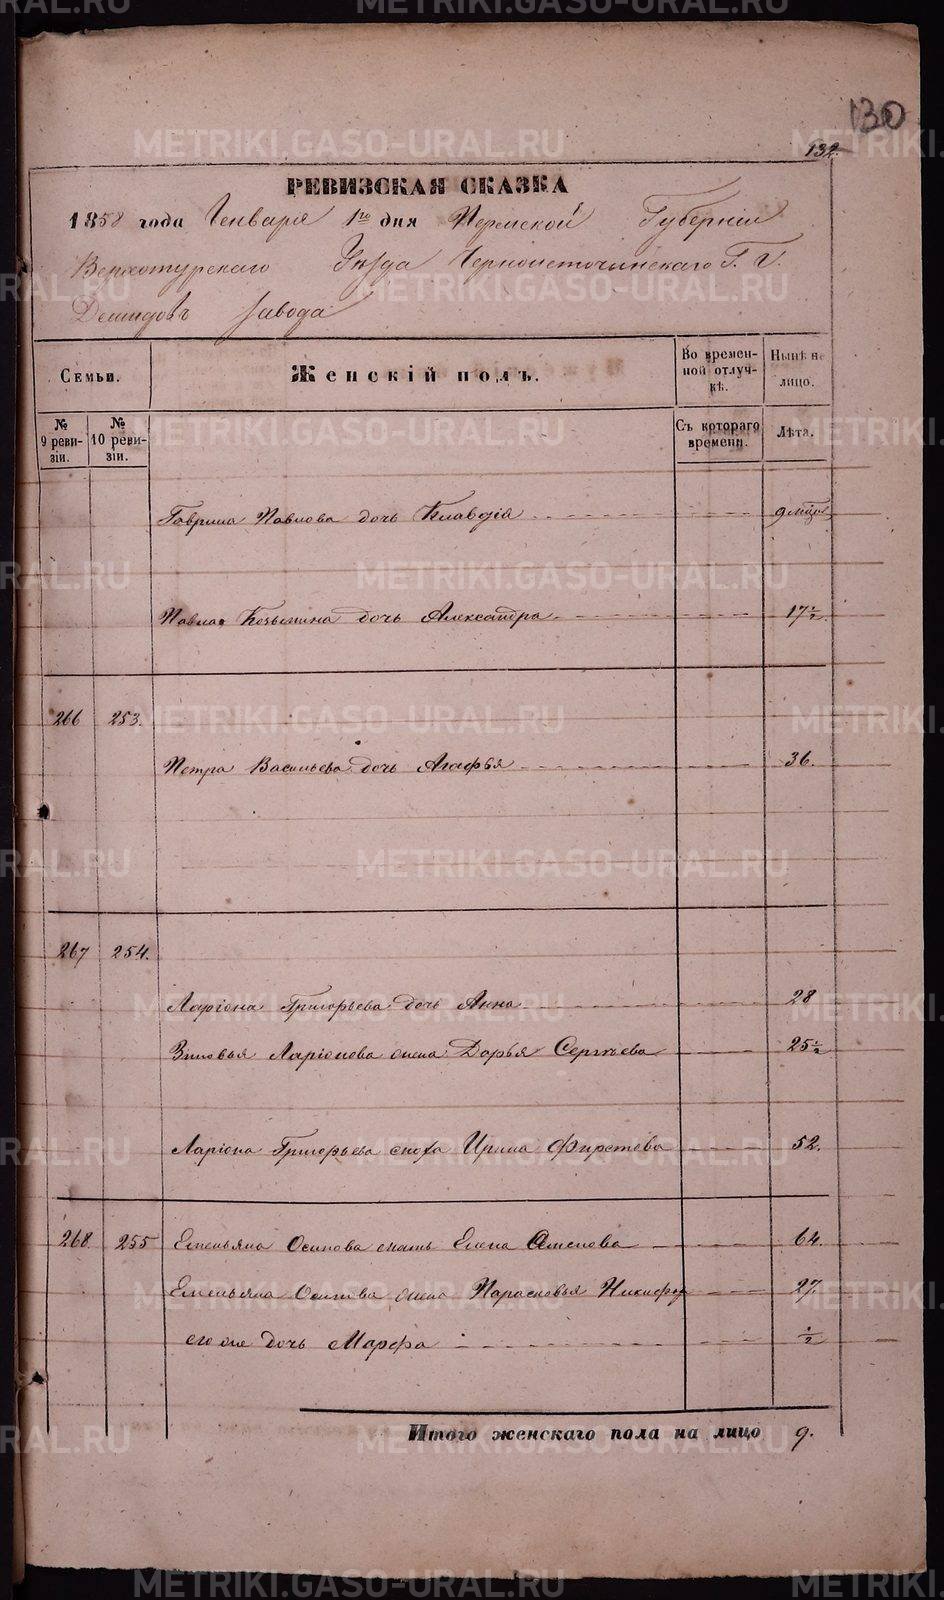 130
132.
РЕВИЗСКАЯ СКАЗКА
1858 года Генваря 1го дня Пермской Губернiи
Верхотурскаго Уѣзда Черноисточинскаго Г. Г.
Демидовъ завода
Семьи.
Женскiй полъ.
Во времен-
ной отлуч-
кѣ.
Нынѣ на
лицо.
№
9 реви-
зiи.
№
10 реви-
зiи.
Съ котораго
времени.
Лѣта.
Гаврила Павлова дочь Клавдiя 9 мѣся
Павла Козьмина дочь Александра 17 ½
266 253.
Петра Васильева дочь Агафья 36.
267 254.
Ларiона Григорьева дочь Анна 28
Зиновья Ларiонова жена Дарья Сергѣева 25 ½
Ларiона Григорьева сноха Ирина Фирстова 52.
268 255 Емельяна Осипова мать Елена Семенова 64.
Емельяна Осипова жена Парасковья Никифор 27.
его же дочь Марфа ½
Итого женскаго пола на лицо 9.
METRIKI.GASO-URAL.RU